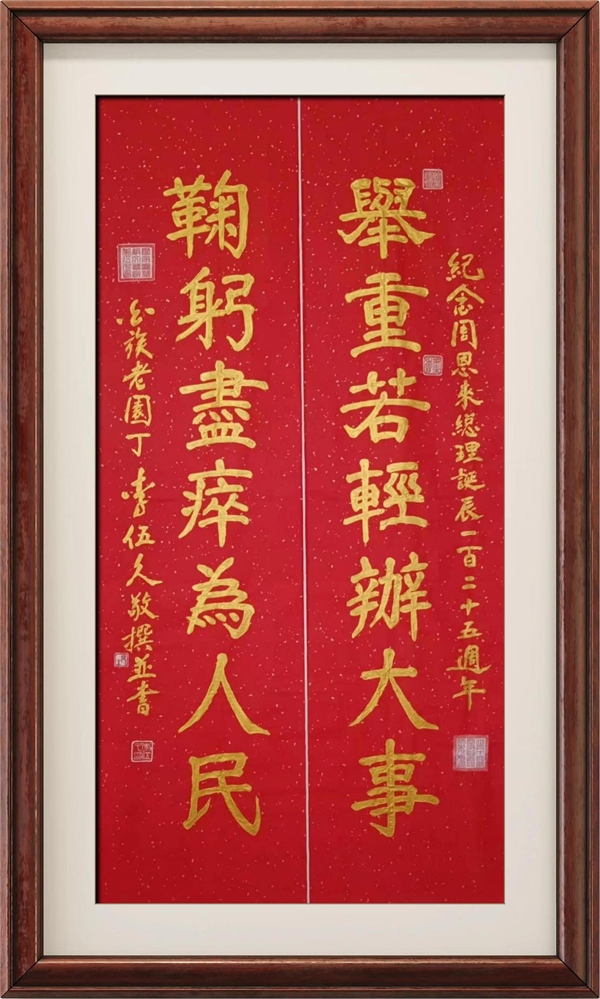 紀念周恩来總理誕辰一百二十五週年
舉重若輕辦大事
鞠躬盡瘁為人民
白族老園丁李伍久敬撰並書